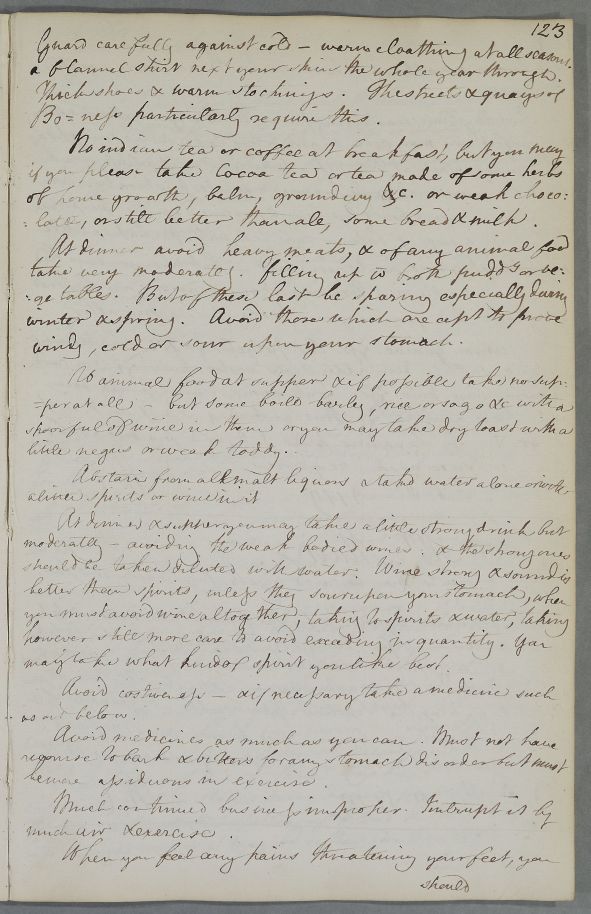 123
Guard carefully against cold – warm cloathing at all seasons.
a flannel shirt next your skin the whole year through.
Thick shoes & warm stockings. The streets & quays of
Bo=ness particularly require this.
No indian tea or coffee at breakfast, but you may
if you please take Cocoa tea or tea made of some herbs
of home growth, balm, groundivy &c. or weak choco:
:late, or still better than all, some bread & milk.
At dinner avoid heavy meats, & of any animal food
take very moderately. filling up with puddgs or ve:
:getables. But of these last be sparing especially during
winter & spring. Avoid those which are apt to prove
windy, cold or sour upon your stomach.
No animal food at supper & if possible take no sup:
=per at all – but some boild barley, rice or sago &c with a
spoonful of wine in them or you may take dry toast with a
little negus or weak toddy.
Abstain from all malt liquors & take water alone or with
a little spirits or wine in it
At dinner & supper you may take a little strong drink but
moderately – avoiding the weak bodied wines. & the strong ones
should be taken diluted with water. Wine strong & sound is
better than spirits, unless they sour upon your stomach, when
you must avoid wine altogether, taking to spirits & water, taking
however still more care to avoid exceeding in quantity. You
may take what kind of spirit you like best.
Avoid costiveness – & if necessary take a medicine such
as out below.
Avoid medicines as much as you can. Must not have
recourse to bark & bitters for any stomach disorder but must
be more assiduous in exercise.
Much continued business improper. Interrupt it by
much air & exercise.
When you feel any pains threatening your feet, you
should